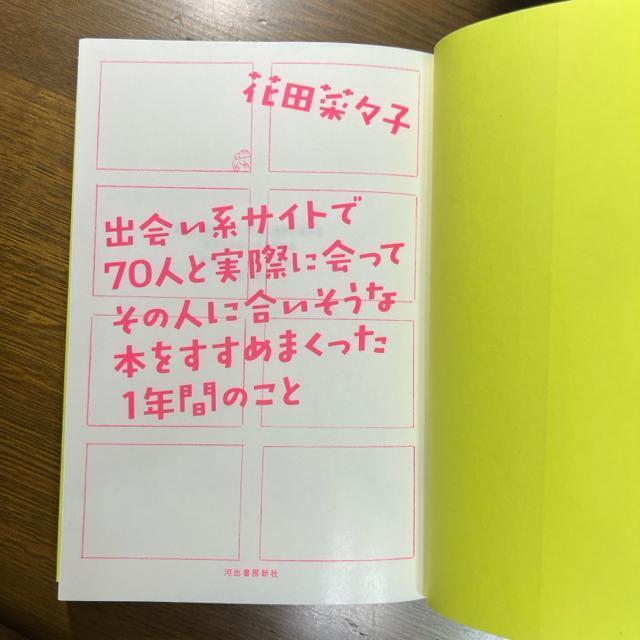 花田菜々子
出会い系サイトで
70人と実際に会って
その人に合いそうな
本をすすめまくった
1年間のこと
河出書房新社